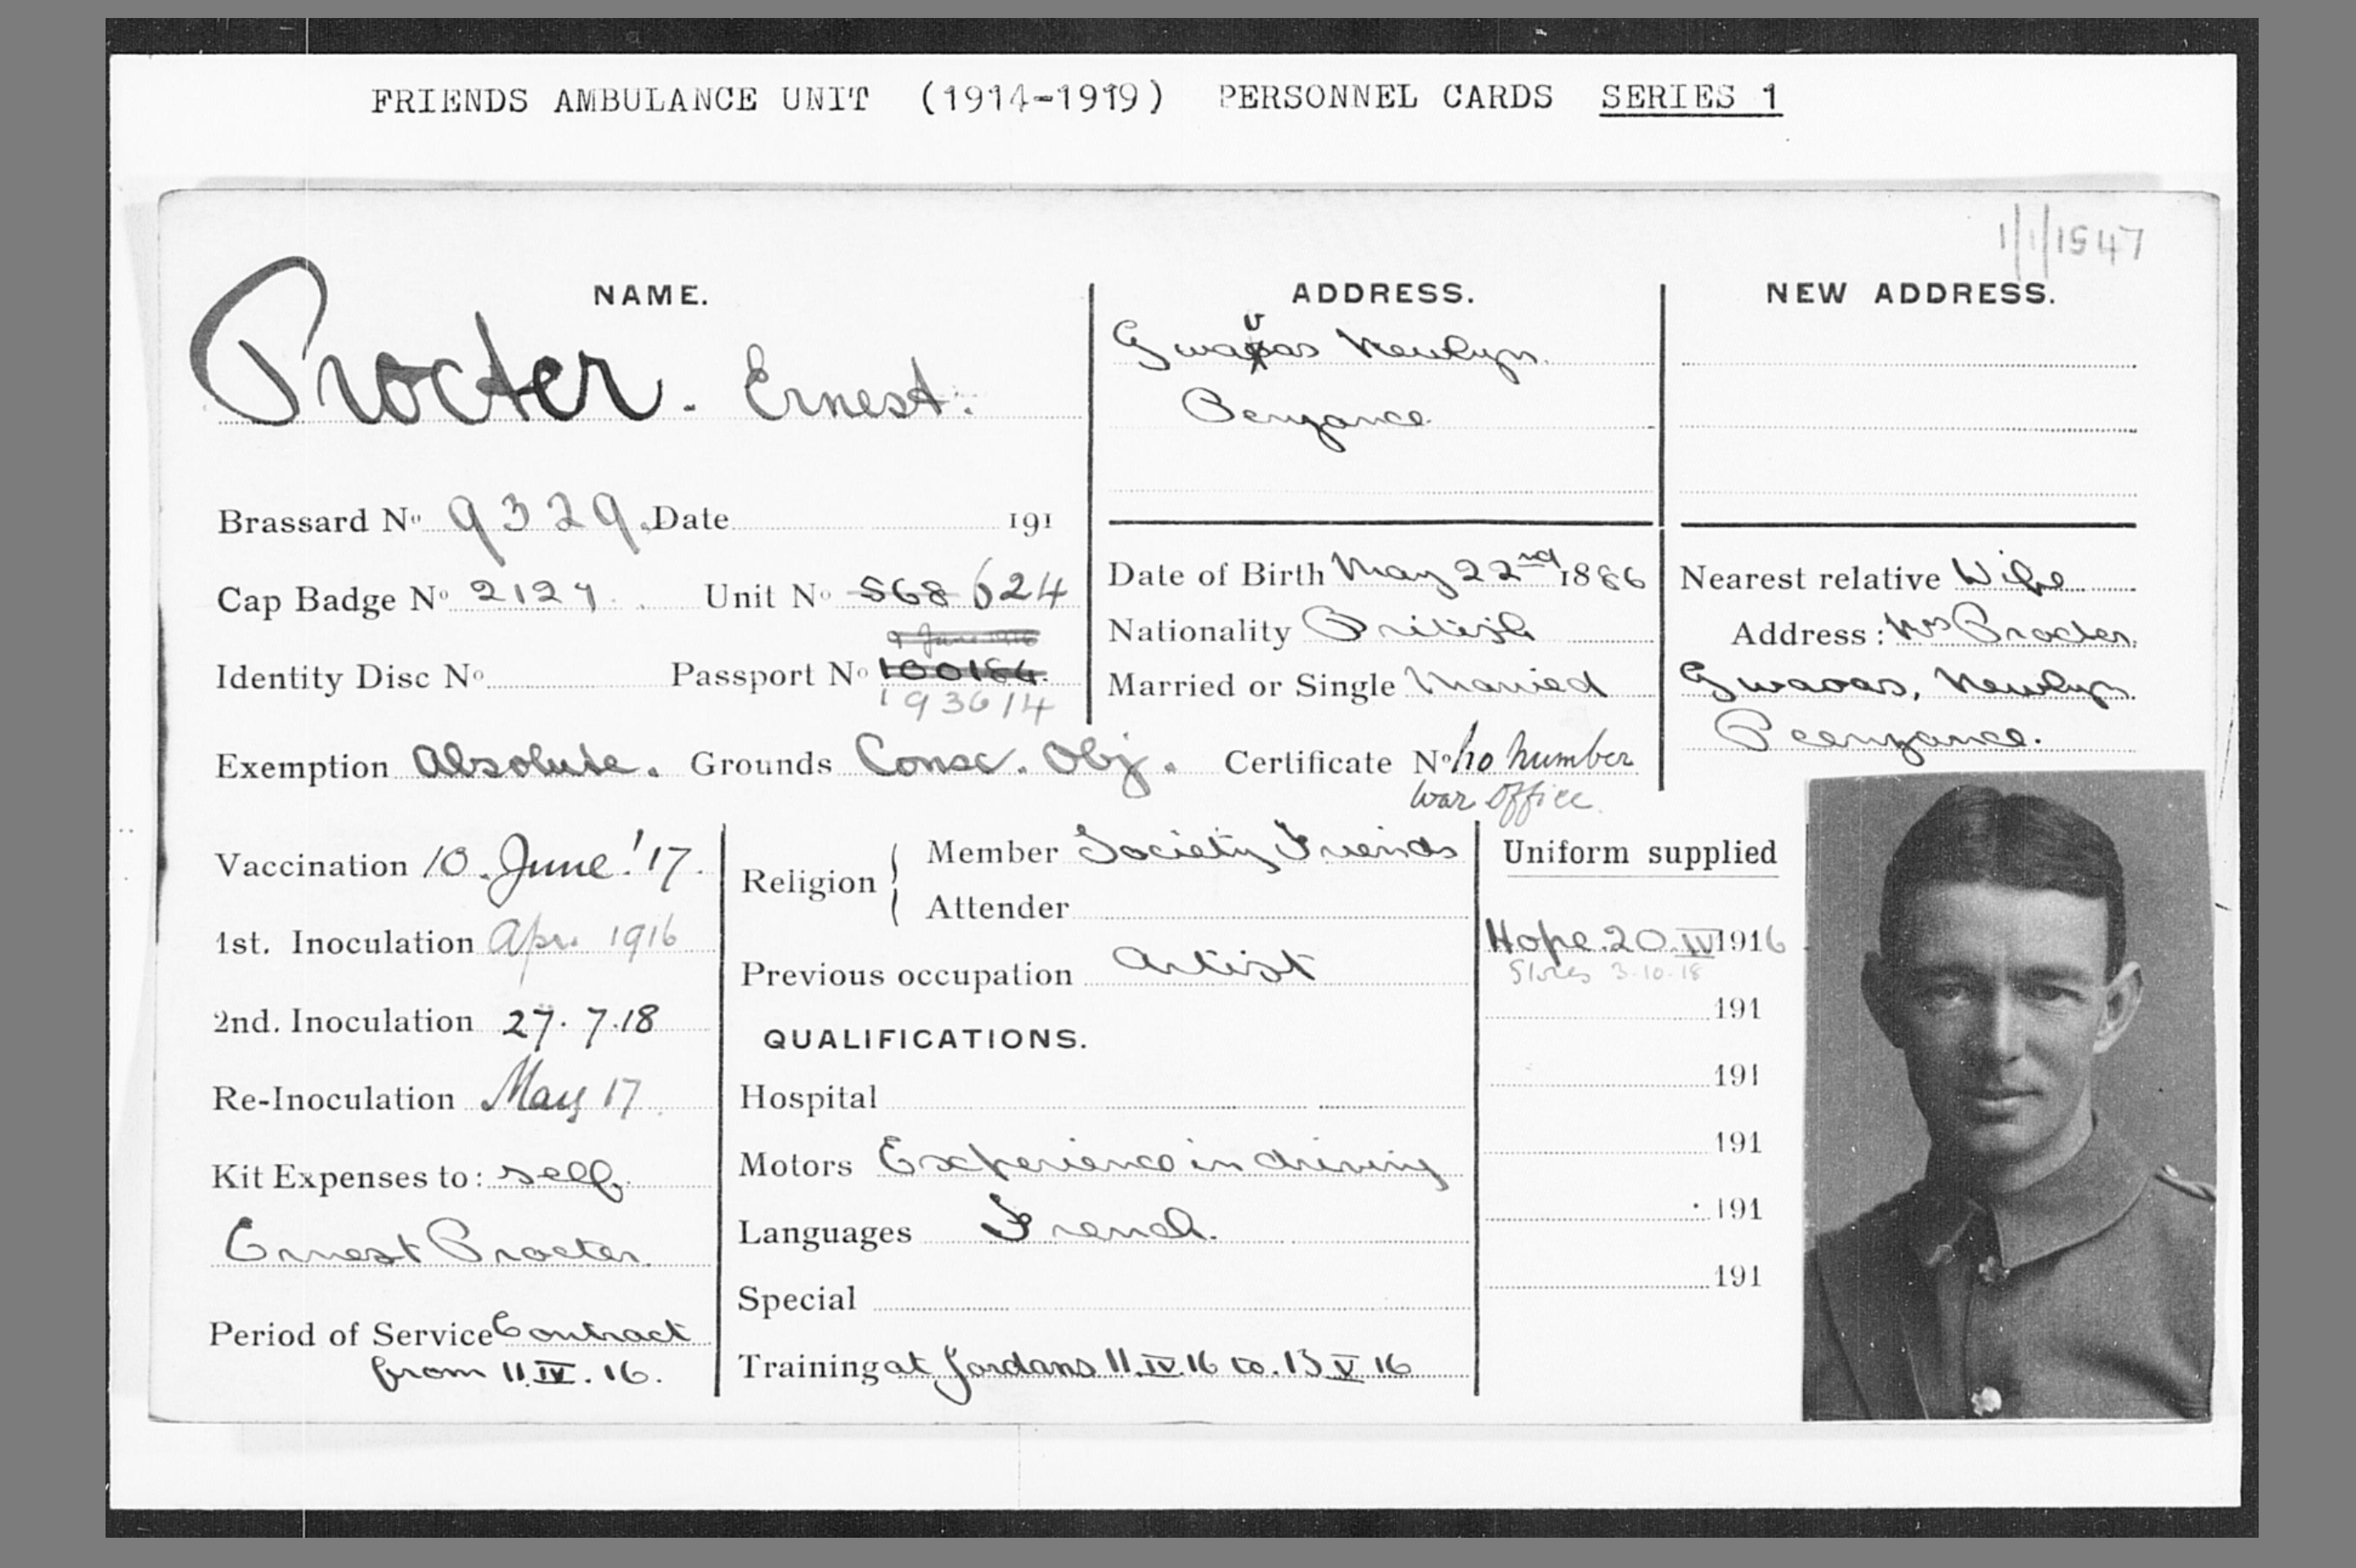 FRIENDS AMBULANCE UNIT (1914-1919) PERSONNEL CARDS SERIES 1
1/1/1547
NAME.
Procter. Ernest.
Brassard No 9329. Date 191
Cap Badge No 2127 Unit No 568 624
9 June 1916
Identity Disc No. Passport No 100184
193614
ADDRESS.
Gwavas Newlyn.
Penzance
NEW ADDRESS.
Date of Birth May 22nd 1886
Nationality British
Married or Single Married
Nearest relative Wife
Address: Mrs Procter.
Gwavas, Newlyn
Peenzance.
Exemption Absolute. Grounds Consc. Obj. Certificate No no number
War Office.
Vaccination 10. June '17.
1st. Inoculation Apr. 1916
2nd. Inoculation 27. 7.18
Re-Inoculation May 17.
Kit Expenses to: self.
Ernest Procter.
Period of Service Contract
from 11.IV.16.
Religion Member Society Friends
Attender
Previous occupation Artist
QUALIFICATIONS.
Hospital
Motors Experience in driving
Languages French.
Special
Training at Jordans 11.IV.16 to. 13 V 16
Uniform supplied
Hope. 20.IV 1916
Stores 3-10-18
191
191
191
191
191